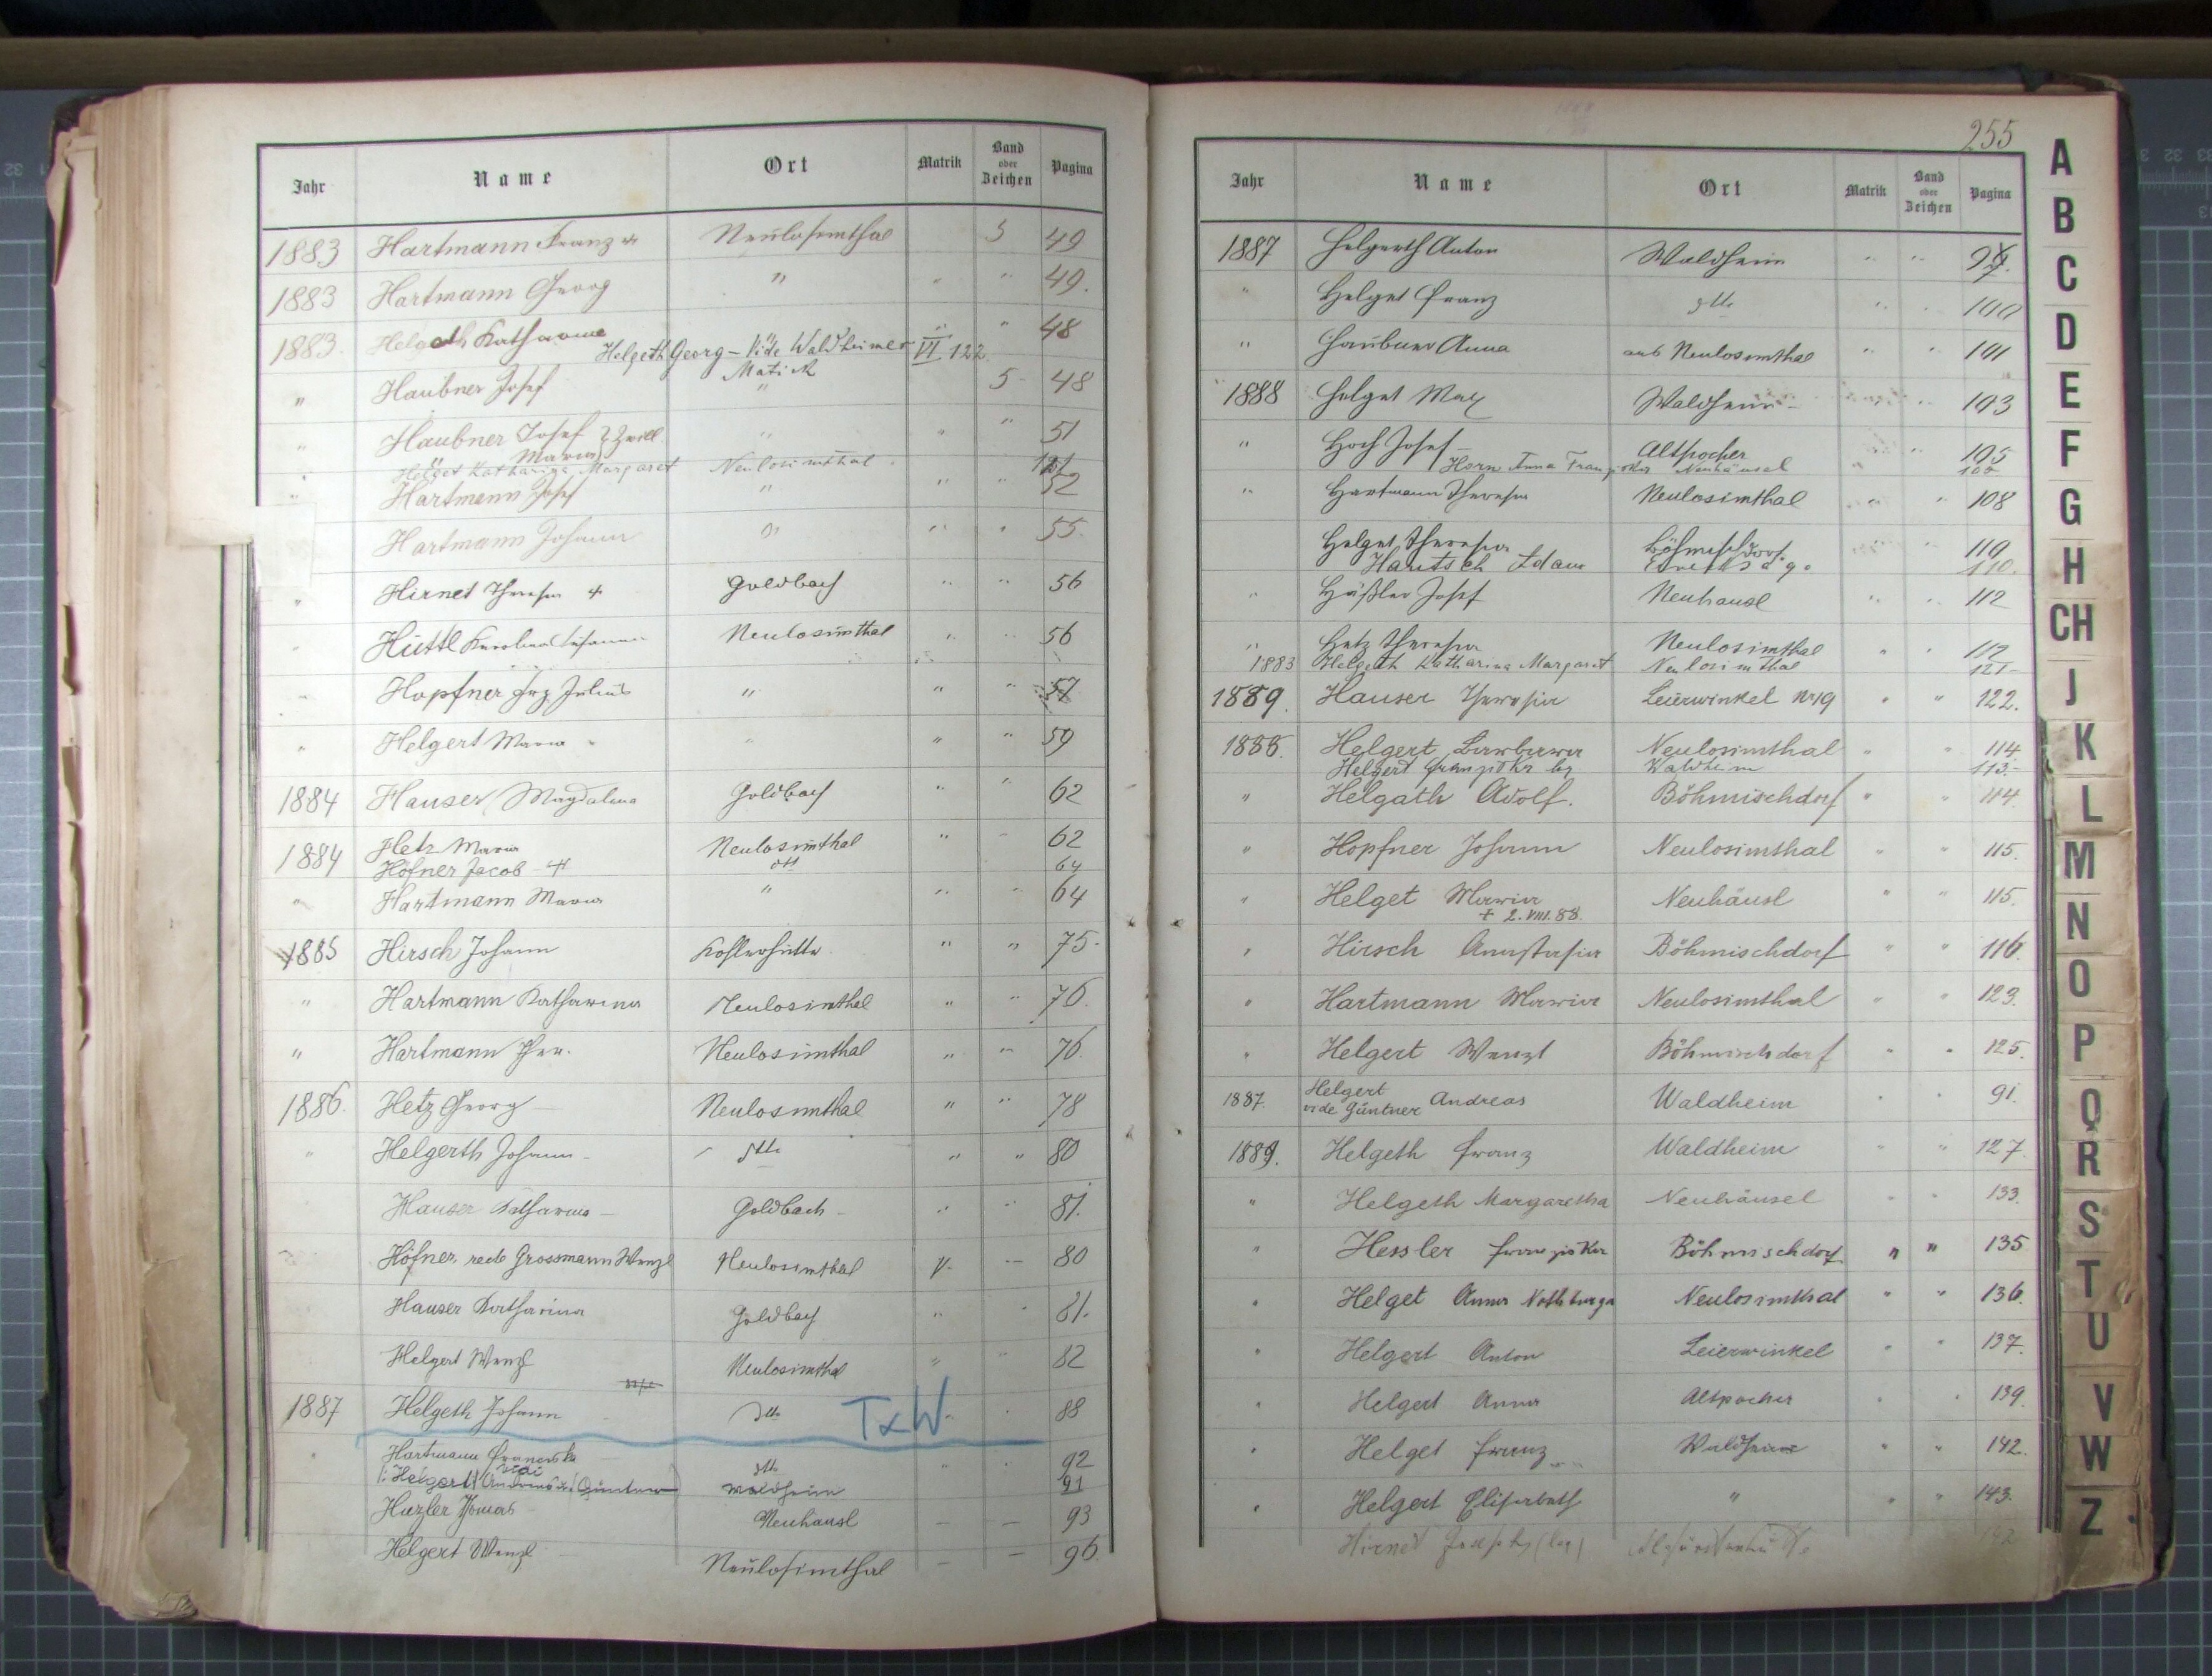 Jahr Name Ort Matrik Band oder Zeichen Pagina
1883 Hartmann Franz + Neulosimthal 5 49
1883 Hartmann Georg " " " 49.
1883. Helgeth Katharina " " 48
Helgeth Georg – Vide Waldheimer VI 122.
Matrik
" Haubner Josef " 5 – 48
" Haubner Josef } Zwill. " " " 51
Maria
" Helget Katharina Margaret Neulosimthal 121
" Hartmann Josef " " " 52
Hartmann Johann " " " 55.
" Hirnet Theresia + Goldbach " " 56
" Hüttl Karolina Neulosimthal " " 56
" Hopfner Julius " " " 57
" Helgert Maria " " " 59
1884 Hauser Magdalena Goldbach " " 62
1884 Hetz Maria Neulosimthal " " 62
Höfner Jacob + dtt 64
" Hartmann Maria " " " 64
1885 Hirsch Johann Kohlerhütte " " 75.
" Hartmann Katharina Neulosimthal " " 76.
" Hartmann Ther. Neulosimthal " " 76.
1886. Hetz Georg – Neulosimthal " " 78
" Helgerth Johann – dtto " " 80
Hauser Katharina – Goldbach – " " 81.
Höfner, recte Grossmann Wenzl Neulosimthal V. " 80
Hauser Katharina Goldbach " " 81.
Helgert Wenzl Neulosimthal " " 82
1887 Helgeth Johann dtto TxW " " 88
" Hartmann Franziska dtto " " 92
/: Helgert Andreas vide Güntner Waldheim 91
Hazler Thomas Neuhäusl – – 93
Helgert Wenzl Neulosimthal – – 96.
255
Jahr Name Ort Matrik Band oder Zeichen Pagina
1887 Helgerth Anton Waldheim " "
" Helget Franz dtto " " 100
" Haubner Anna aus Neulosimthal " " 101
1888 Helget Max Waldheim – " " 103
" Hoch Josef – Altpocher " " 105
Horn Anna Franziska Neuhäusel "
" Hartmann Theresia Neulosimthal " " 108
Helget Theresia Böhmischdorf. " " 110
Hantsch Adam 110.
" Häßler Josef Neuhausl " " 112
" Hetz Theresia Neulosimthal " "
1883 Helgeth Katharina Margaret Neulosimthal 121 –
1889. Hauser Theresia Leierwinkel N.19 " " 122.
1888. Helgert Barbara Neulosimthal " " 114
Helgert Franziska Waldheim 113.–
" Helgath Adolf. Böhmischdorf " " 114.
" Hopfner Johann Neulosimthal " " 115.
" Helget Maria Neuhäusl " " 115.
+ 2. VIII. 88.
" Hirsch Anastasia Böhmischdorf " " 116.
" Hartmann Maria Neulosimthal " " 123.
" Helgert Wenzl Böhmischdorf " " 125.
1887. Helgert Andreas Waldheim " " 91.
vide Güntner
1889. Helgeth Franz Waldheim " " 127
" Helgeth Margaretha Neuhäusel " " 133.
" Hessler Franziska Böhmischdorf " " 135
" Helget Anna Nothburga Neulosimthal " " 136.
" Helgert Anton Leierwinkel " " 137.
" Helgert Anna Altpocher " " 139.
" Helget Franz Waldheim " " 142.
" Helgert Elisabeth " " " 143.
Hirnet Josepha (leg)
A
B
C
D
E
F
G
H
CH
J
K
L
M
N
O
P
Q
R
S
T
U
V
W
Z